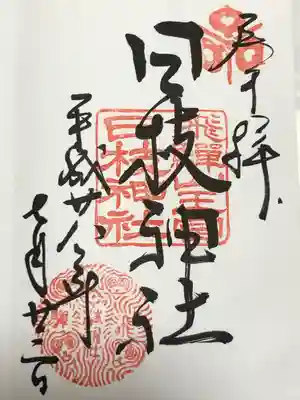 奉拝
日枝神社
平成廿八年
七月廿二日
飛騨山王宮
日枝神社